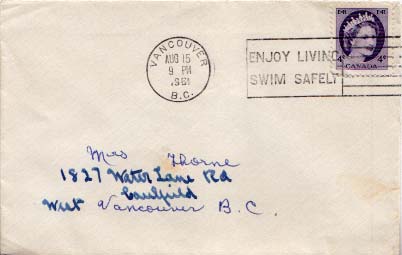 VANCOUVER
AUG 15
9 PM
1961
B.C.
ENJOY LIVING
SWIM SAFELY
EIIR EIIR
4¢ 4¢
CANADA
Mrs Thorne
1827 Water Lane Rd
Caulfield
West Vancouver B.C.